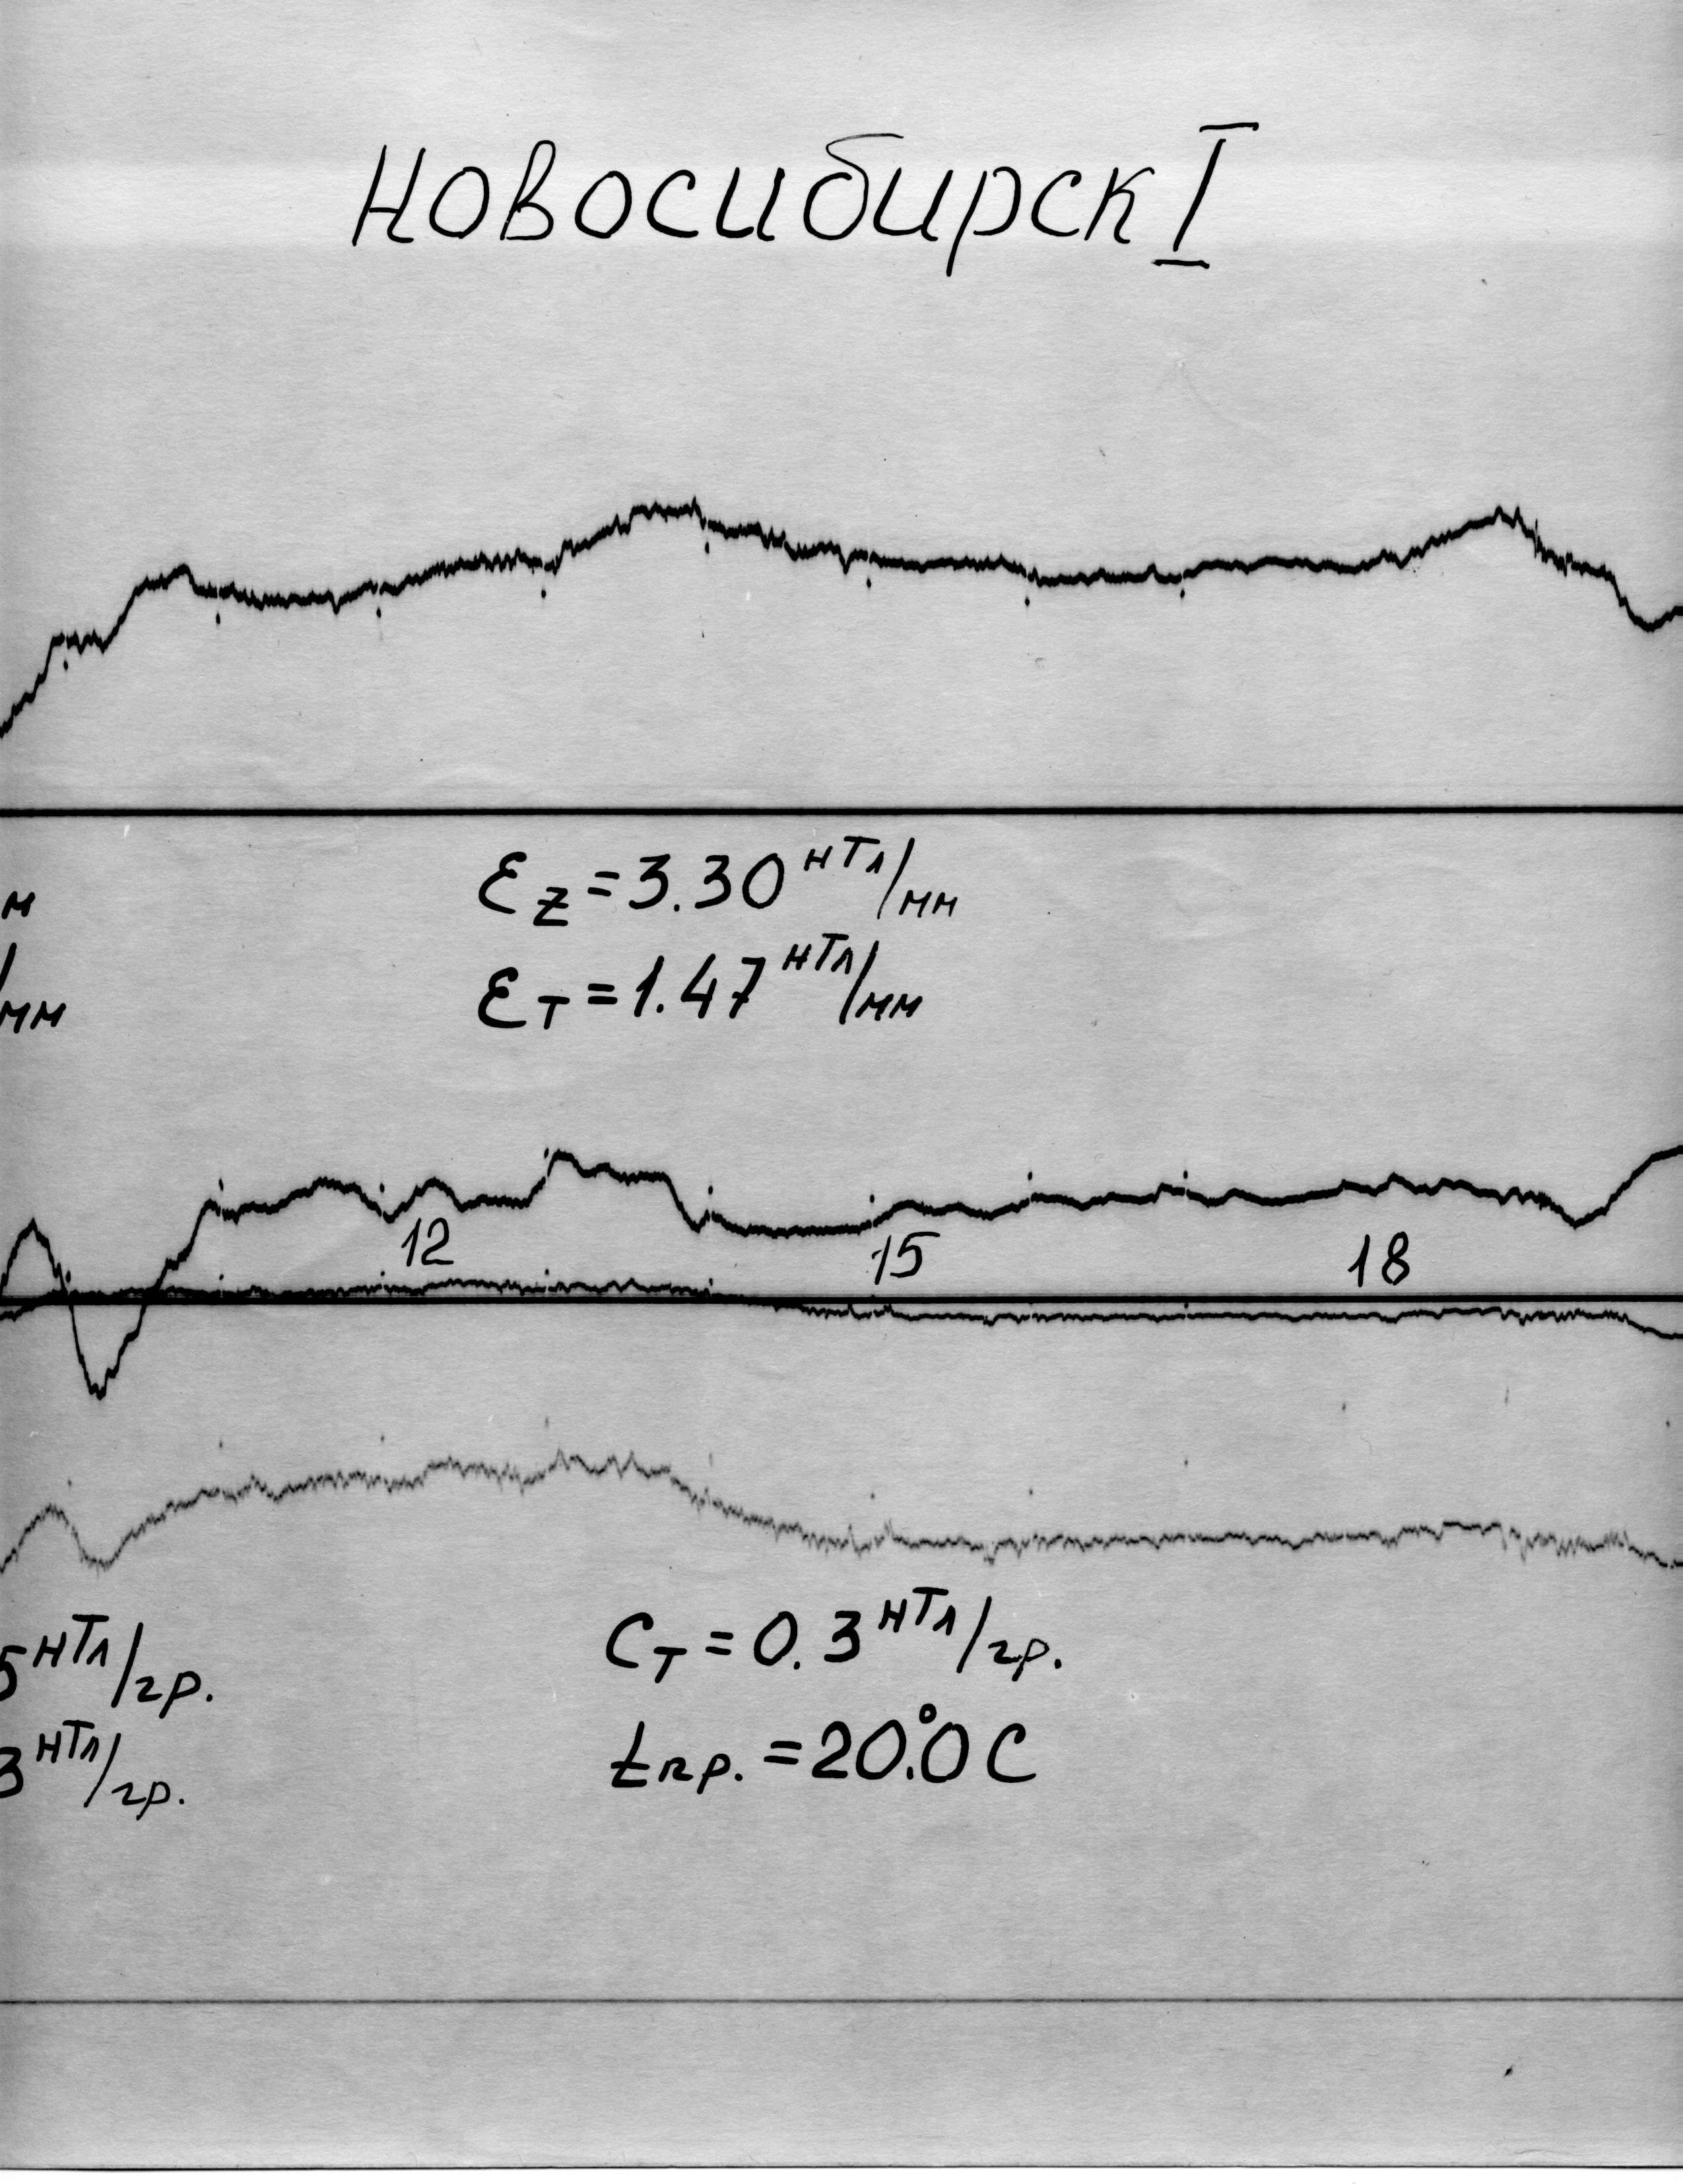 Новосибирск I
м
εz = 3.30 нТл/мм
/мм
εT = 1.47 нТл/мм
12 15 18
5 нТл/гр.
CT = 0.3 нТл/гр.
3 нТл/гр.
tпр. = 20.°0 C